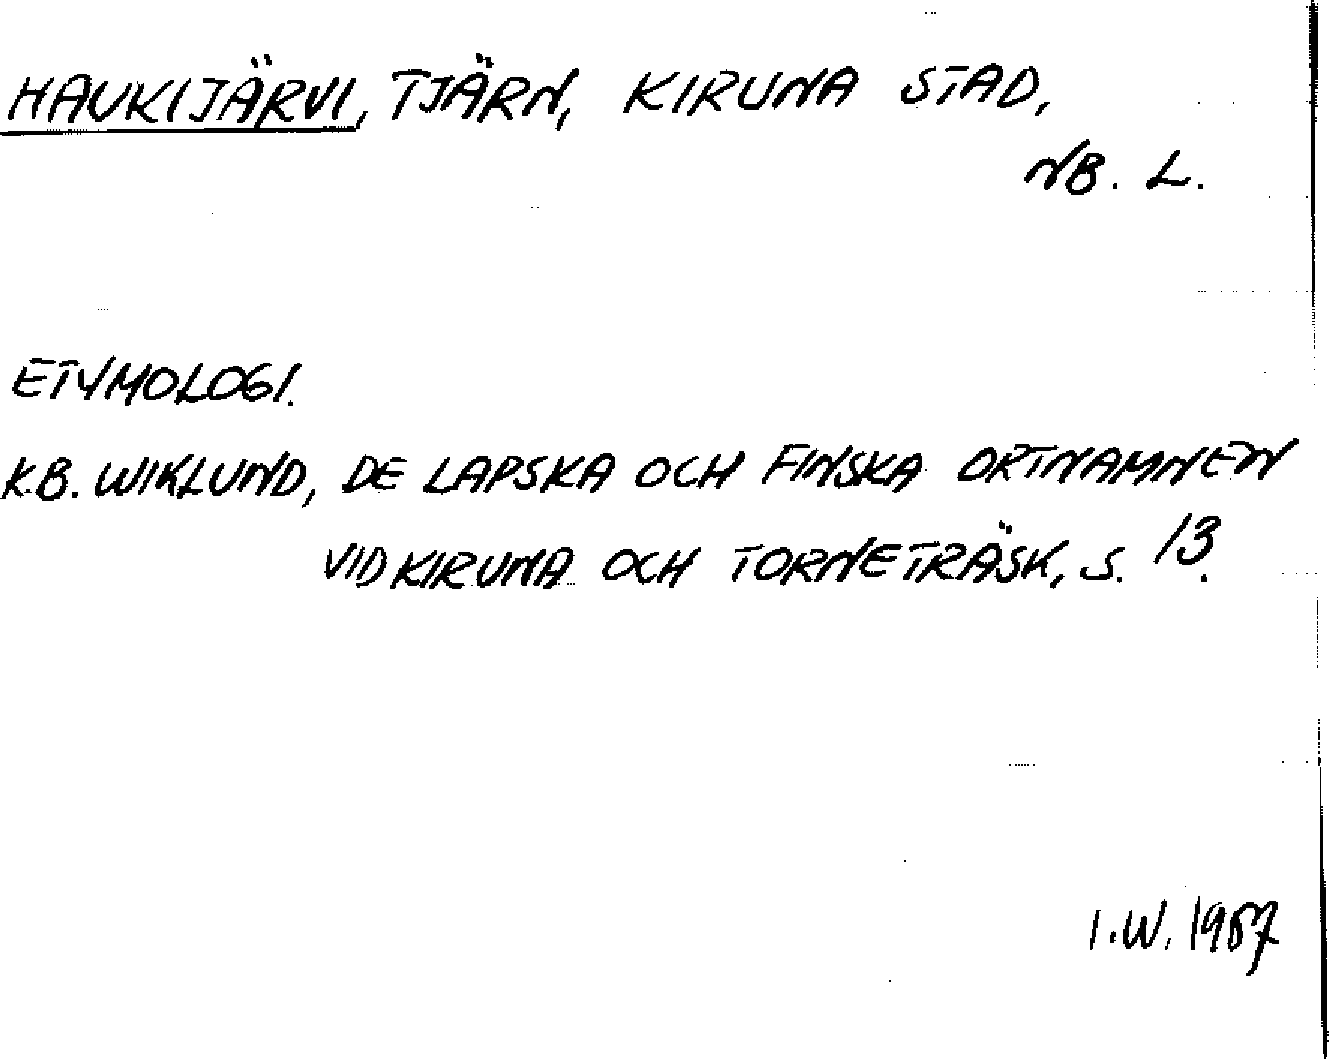 HAUKIJÄRVI, TJÄRN, KIRUNA STAD,
NB. L.
ETYMOLOGI.
K.B. WIKLUND, DE LAPSKA OCH FINSKA ORTNAMNEN
VID KIRUNA OCH TORNETRÄSK, S. 13.
I.W. 1967